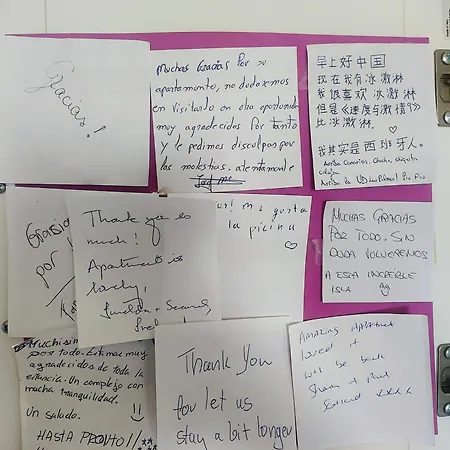 Gracias!
Muchas Gracias Por su
apartamento, no dudaremos
en visitarlo en otra oportunidad
muy agradecidos Por tanto
y le pedimos disculpas por
las molestias. atentamente
早上好中国
现在我有冰激淋
我很喜欢 冰激淋
但是《速度与激情9》
比冰激淋
我其实是西班牙人.
Arriba Canarias
Gracias
por
me gusta
la picina
Thank you so
much!
Apartment is
lovely,
MUCHAS GRACIAS
POR TODO. SIN
DUDA VOLVEREMOS
A ESTA INCREÍBLE
ISLA
¡Muchísim
por todo. Estamos muy
agradecidos de toda la
estancia. Un complejo con
mucha tranquilidad.
Un saludo.
HASTA PRONTO!!
Thank You
for let us
stay a bit longer
AMAZING Apartment
loved it
will be back
Shaun + Paul
Scotland xxxx